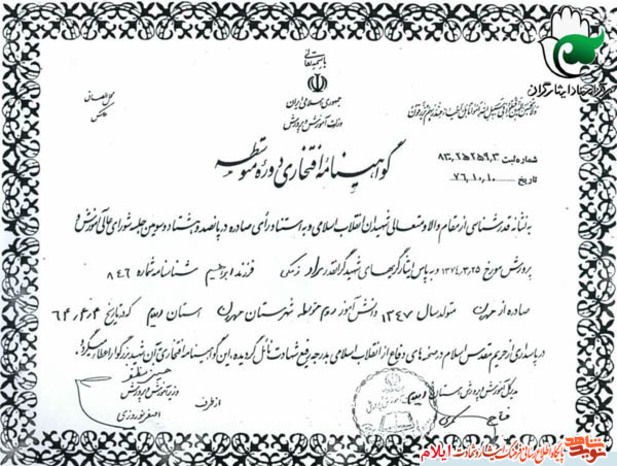 باسمه‌تعالی
جمهوری اسلامی ایران
وزارت آموزش و پرورش
محل الصاق
عکس
گواهینامه افتخاری دوره متوسطه
شماره ثبت
تاریخ ۷۶.۱۰.۱۰
به نشانه قدرشناسی از مقام والا و متعالی شهیدان انقلاب اسلامی و به استناد رأی صادره در پانصد و هشتاد و سومین جلسه شورای عالی آموزش و
پرورش مورخ ۱۳۷۴.۳.۲۵ و به پاس ایثارگریهای شهید گرانقدر برادر فرزند ابراهیم شناسنامه شماره ۸۴۶
صادره از مهران متولد سال ۱۳۴۷ دانش آموز سوم متوسطه شهرستان مهران استان ایلام که در تاریخ ۶۴.۴.۴
در پاسداری از حریم مقدس اسلام در صحنه های دفاع از انقلاب اسلامی به درجه رفیع شهادت نائل گردیده، این گواهینامه افتخاری آن شهید بزرگوار اعطاء میگردد.
مدیرکل آموزش و پرورش استان ایلام
از طرف
وزیر آموزش و پرورش
اصغر نوروزی
نوید شاهد
ایلام